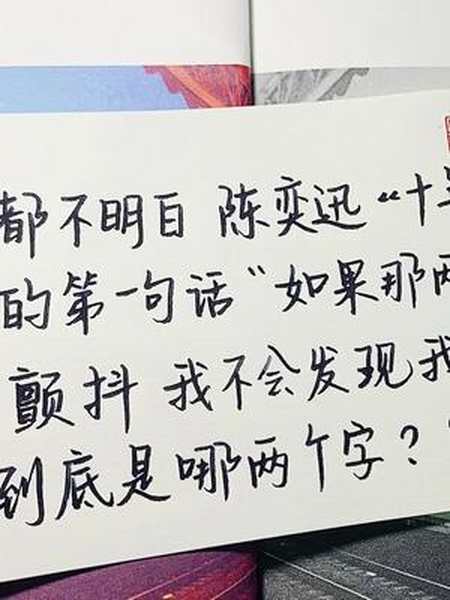 都不明白 陈奕迅“十
的第一句话“如果那
颤抖 我不会发现我
到底是哪两个字?